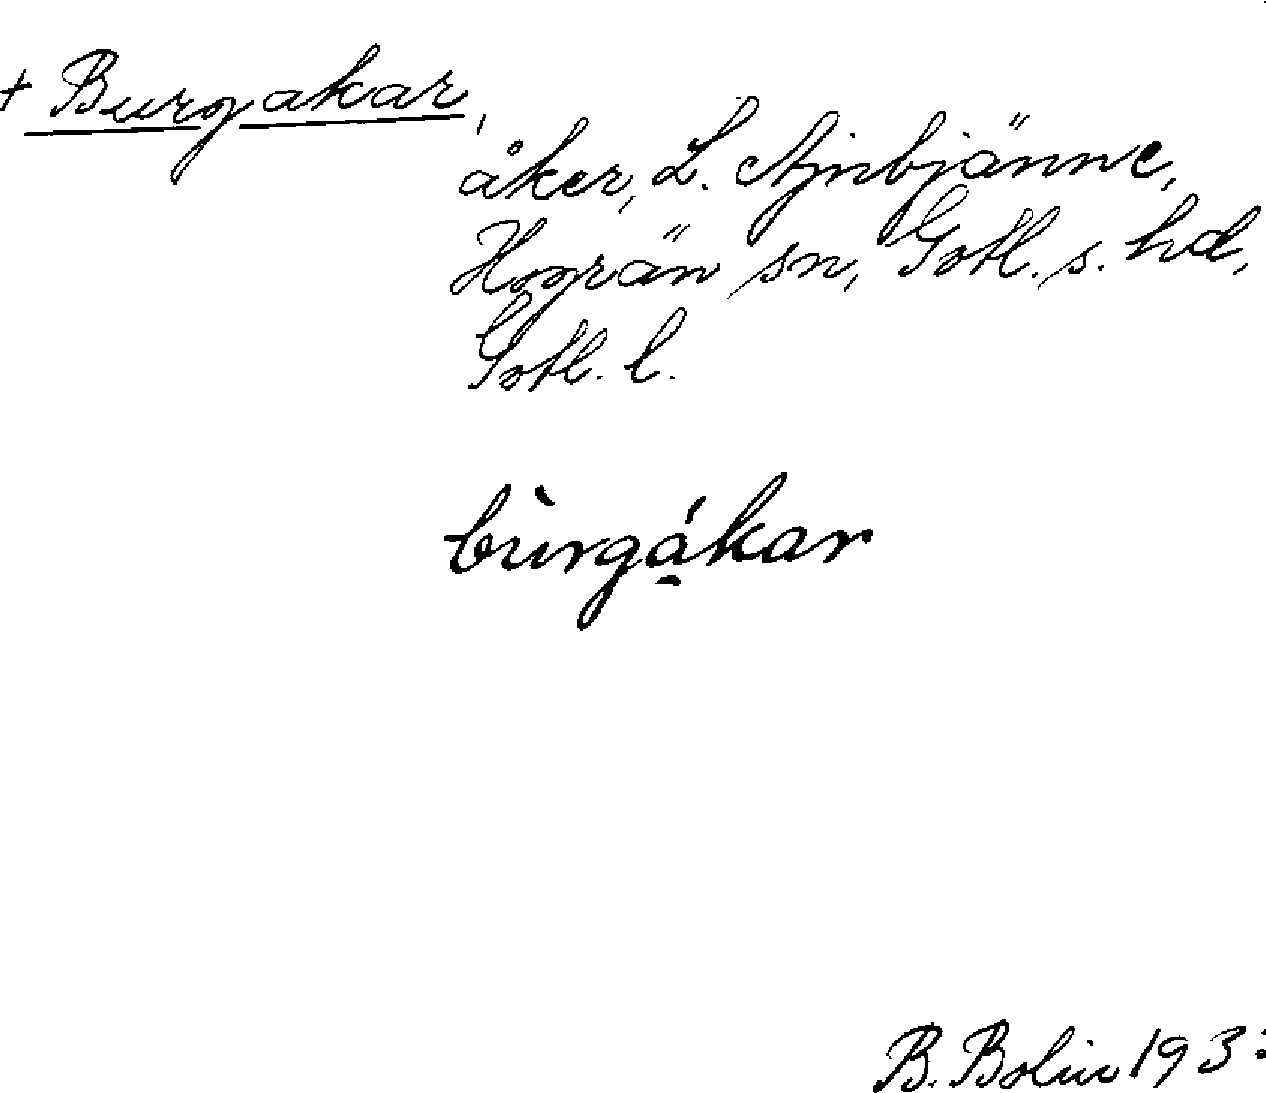 + Burgakar,
åker, L. Ajnbjänne,
Hogrän sn, Gotl. s. hd,
Gotl. l.
bùrgá̱kar
B. Bolin 193